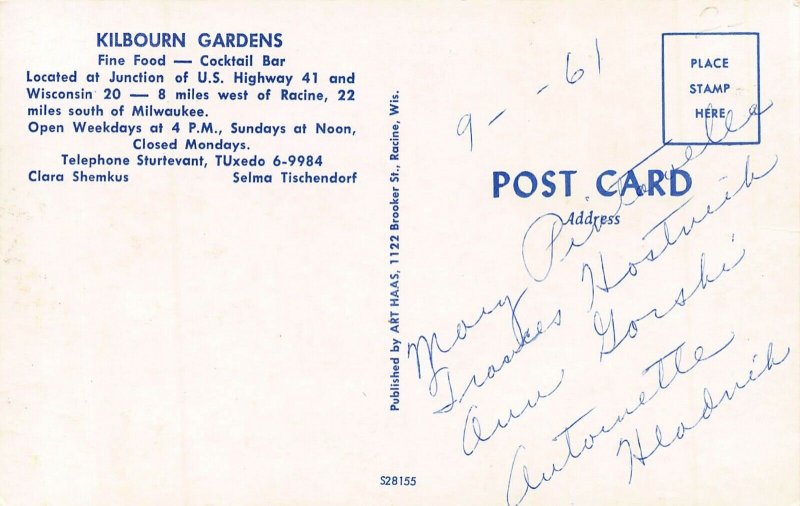 KILBOURN GARDENS
Fine Food — Cocktail Bar
Located at Junction of U.S. Highway 41 and
Wisconsin 20 — 8 miles west of Racine, 22
miles south of Milwaukee.
Open Weekdays at 4 P.M., Sundays at Noon,
Closed Mondays.
Telephone Sturtevant, TUxedo 6-9984
Clara Shemkus Selma Tischendorf
Published by ART HAAS, 1122 Brooker St., Racine, Wis.
S28155
9- -61
PLACE
STAMP
HERE
POST CARD
Address
Mary
Frances Hostnik
Ann Gorski
Antoinette
Hladnik